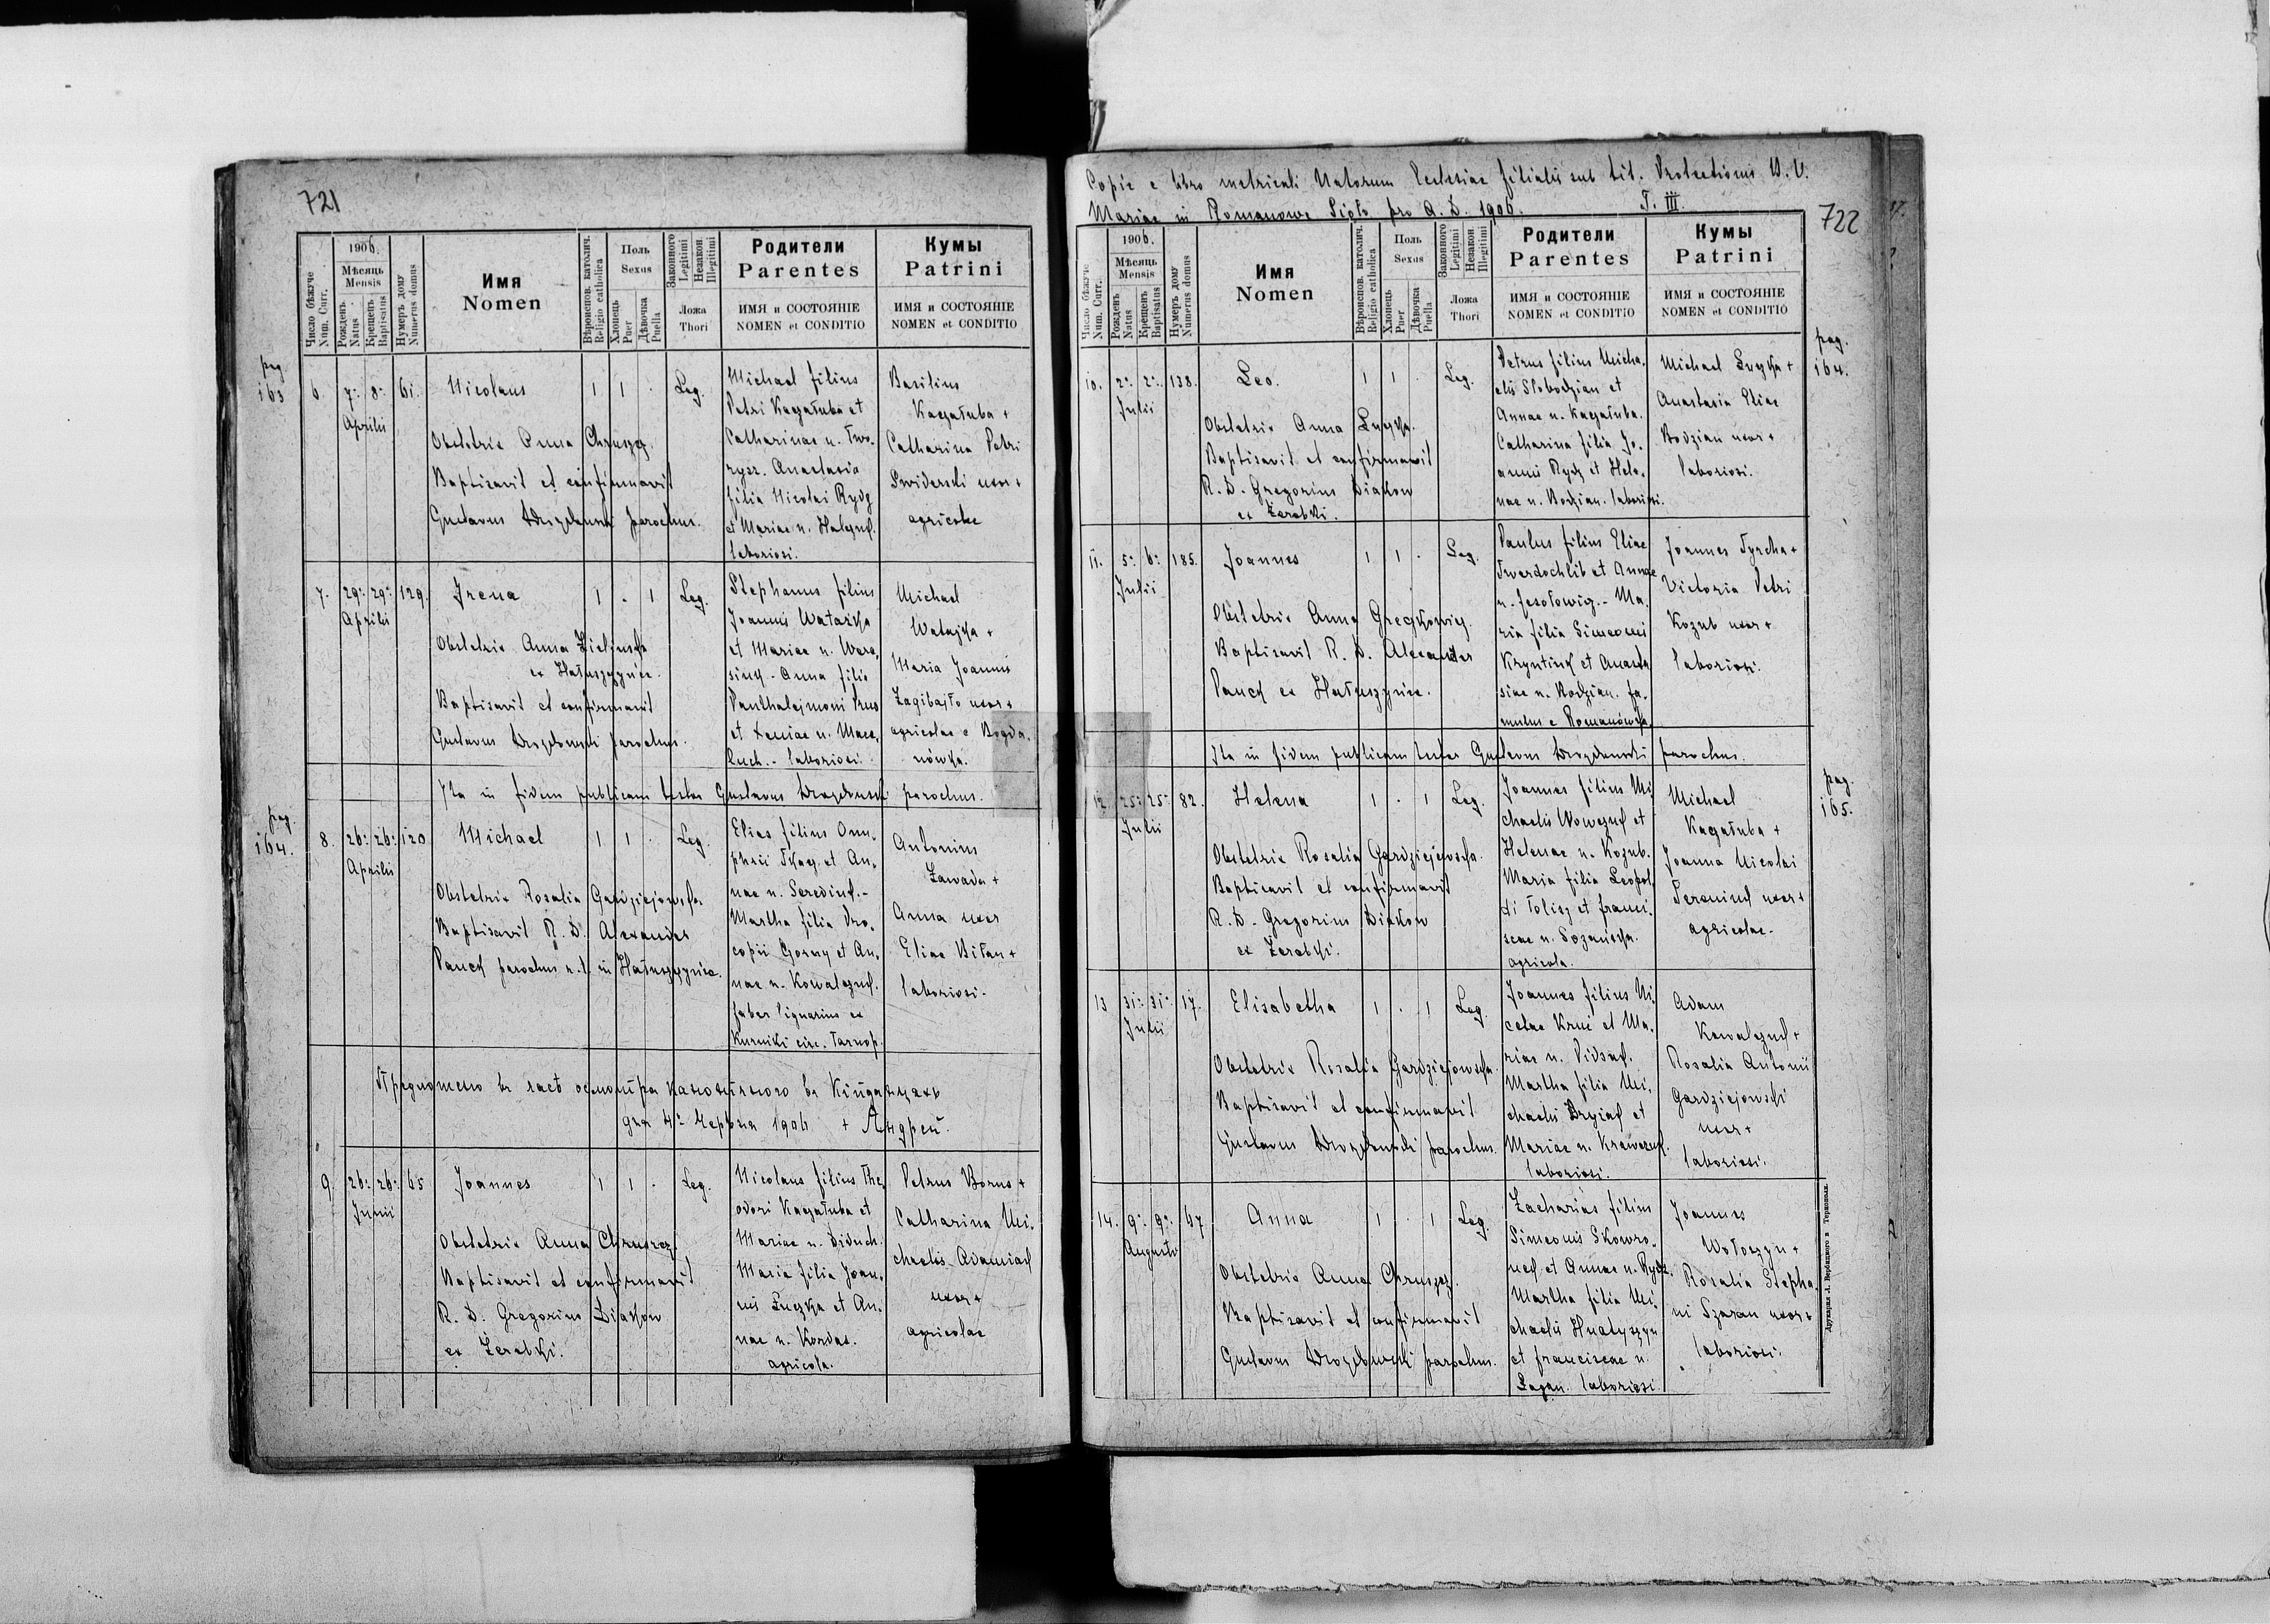 721
Число бѣжуче
Num. Curr.
1906.
Мѣсяць
Mensis
Рожденъ
Natus
Крещенъ
Baptisatus
Нумеръ дому
Numerus domus
Имя
Nomen
Вѣроиспов. католич.
Religio catholica
Поль
Sexus
Хлопець
Puer
Дѣвочка
Puella
Законного
Legitimi
Незакон.
Illegitimi
Ложа
Thori
Родители
Parentes
ИМЯ и СОСТОЯНІЕ
NOMEN et CONDITIO
Кумы
Patrini
ИМЯ и СОСТОЯНІЕ
NOMEN et CONDITIO
pag.
163
6. 7. 8. 61. Nicolaus 1 1 . Leg.
Aprilis
Obstetrix Anna Chruszcz.
Baptisavit et confirmavit
Gustavus Drozdowski parochus.
Michael filius
Petri Kaczałuba et
Catharinae n. Two-
rysz. Anastasia
filia Nicolai Rydz
et Mariae n. Halczuk.
laboriosi.
Basilius
Kaczałuba +
Catharina Petri
Swiderski uxor +
agricolae
7. 29. 29. 129. Irena 1 . 1 Leg.
Aprilis
Obstetrix Anna Zielinska
ex Hałuszczyńce.
Baptisavit et confirmavit
Gustavus Drozdowski parochus.
Stephanus filius
Joannis Watazka
et Mariae n. Wera-
siuk. Anna filia
Panthalejmoni Prus
et Xeniae n. Mace-
luch. laboriosi
Michael
Watazka +
Maria Joannis
Zagibajło uxor +
agricolae e Bogda-
nówka.
Ita in fidem publicam testor Gustavus Drozdowski parochus.
pag.
164.
8. 26. 26. 120 Michael 1 1 . Leg.
Aprilis
Obstetrix Rosalia Gardziejowska
Baptisavit R. D. Alexander
Panck parochus r. l. in Hałuszczyńce.
Elias filius Onu-
phrii Tkacz et An-
nae n. Serediuk.
Martha filia Pro-
copii Gorny et An-
nae n. Kowalczuk.
faber lignarius ex
Kurniki circ. Tarnop.
Antonius
Zawada +
Anna uxor
Eliae Biłan +
laboriosi.
Предложено въ часѣ осмотра каноничного въ
дня 4. Червня 1906 + Андрей.
9 26. 26. 65 Joannes 1 1 . Leg.
Junii
Obstetrix Anna Chruszcz.
Baptisavit et confirmavit
R. D. Gregorius Diakow
ex Zerebki.
Nicolaus filius The-
odori Kaczałuba et
Mariae n. Diduch.
Maria filia Joan-
nis Luczka et An-
nae n. Kordas.
agricola.
Petrus Borus +
Catharina Mi-
chaelis Adamiak
uxor +
agricolae
Copia e libro metricali Natorum Ecclesiae filialis sub tit. Protectionis B. V.
Mariae in Romanowe Sioło pro A. D. 1906. T. III.
722
Число бѣжуче
Num. Curr.
1906.
Мѣсяць
Mensis
Рожденъ
Natus
Крещенъ
Baptisatus
Нумеръ дому
Numerus domus
Имя
Nomen
Вѣроиспов. католич.
Religio catholica
Поль
Sexus
Хлопець
Puer
Дѣвочка
Puella
Законного
Legitimi
Незакон.
Illegitimi
Ложа
Thori
Родители
Parentes
ИМЯ и СОСТОЯНІЕ
NOMEN et CONDITIO
Кумы
Patrini
ИМЯ и СОСТОЯНІЕ
NOMEN et CONDITIO
pag.
164.
10. 2. 2. 138. Leo. 1 1 . Leg.
Julii
Obstetrix Anna Luczka.
Baptisavit et confirmavit
R. D. Gregorius Diakow
ex Zerebki.
Petrus filius Micha-
elis Slobodzian et
Annae n. Kaczałuba.
Catharina filia Jo-
annis Rydz et Hele-
nae n. Bodzian. laboriosi.
Michael Luczka +
Anastasia Eliae
Bodzian uxor +
laboriosi.
11. 5. 6. 185. Joannes 1 1 . Leg.
Julii
Obstetrix Anna Greczkowicz.
Baptisavit R. D. Alexander
Panck ex Hałuszczyńce.
Paulus filius Eliae
Twerdochlib et Annae
n. Jesołowicz. Ma-
ria filia Simeonis
Kryntiuk et Anasta-
siae n. Bodzian. fa-
mulus e Romanówka.
Joannes Tyrcha +
Victoria Petri
Kozub uxor +
laboriosi.
Ita in fidem publicam testor Gustavus Drozdowski parochus.
pag.
165.
12. 25. 25. 82. Helena 1 . 1 Leg.
Julii
Obstetrix Rosalia Gardziejowska.
Baptisavit et confirmavit
R. D. Gregorius Diakow
ex Zerebki.
Joannes filius Mi-
chaelis Wowczuk et
Helenae n. Kozub.
Maria filia Leopol-
di Tolisz et franci-
scae n. Sozańska.
agricola.
Michael
Kaczałuba +
Joanna Nicolai
Seroniuk uxor +
agricolae.
13 31. 31. 17. Elisabetha 1 . 1 Leg.
Julii
Obstetrix Rosalia Gardziejowska.
Baptisavit et confirmavit
Gustavus Drozdowski parochus.
Joannes filius Ni-
cetae Kruc et Ma-
riae n. Pidsuk.
Martha filia Mi-
chaelis Dryiak et
Mariae n. Krawczuk.
laboriosi.
Adam
Kowalczuk +
Rosalia Antonii
Gardziejowski
uxor +
laboriosi.
14. 9. 9. 67. Anna 1 . 1 Leg.
Augusti
Obstetrix Anna Chruszcz.
Baptisavit et confirmavit
Gustavus Drozdowski parochus.
Zacharias filius
Simeonis Skowro-
nek et Annae n. Rydz.
Martha filia Mi-
chaelis Hnatyszyn
et franciscae n.
Łagan. laboriosi.
Joannes
Wołoszyn +
Rosalia Stepha-
ni Szaran uxor +
laboriosi.
Друкарня Л. Вербицкого в Тернополи.